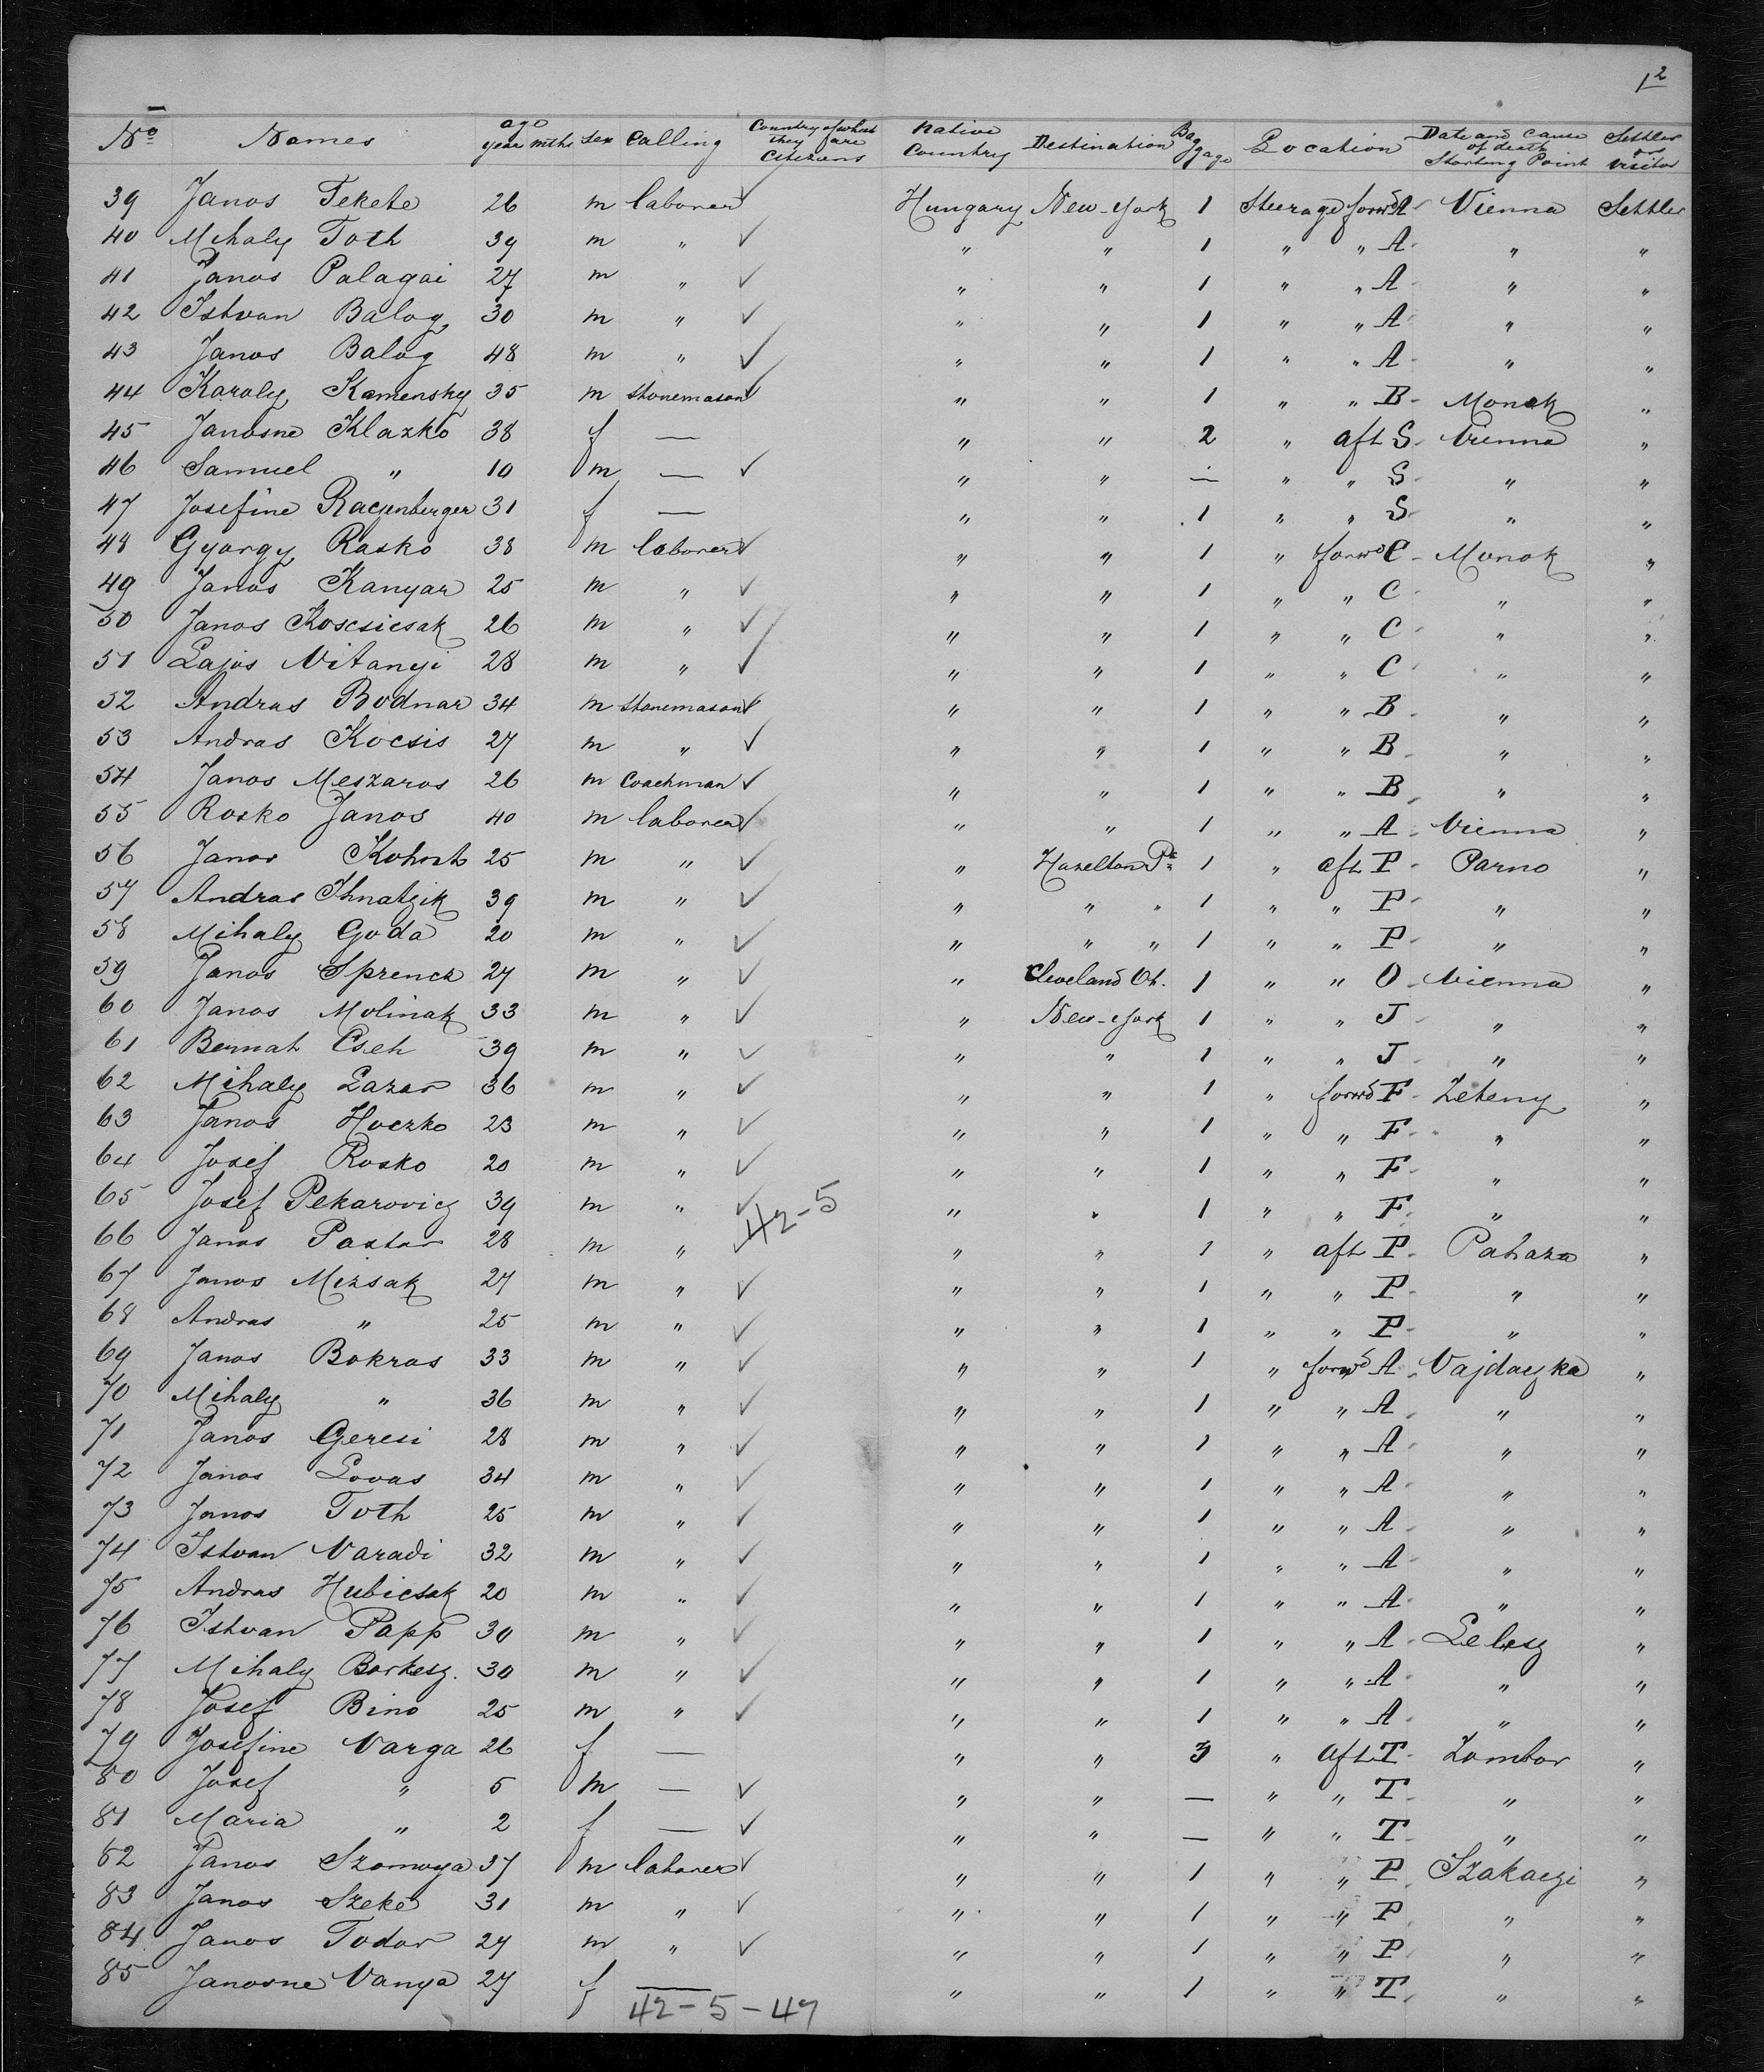 12
No Names age year mths sex Calling Country of which they are Citizens Native Country Destination Baggage Location Date and cause of death Starting Point Settler or Visitor
39 Janos Fekete 26 m laborer ✓ Hungary New-York 1 Steerage forwd A - Vienna Settler
40 Mihaly Toth 39 m " ✓ " " 1 " " A - " "
41 Janos Palagai 27 m " ✓ " " 1 " " A - " "
42 Istvan Balog 30 m " ✓ " " 1 " " A - " "
43 Janos Balog 48 m " ✓ " " 1 " " A - " "
44 Karoly Kamensky 35 m stonemason ✓ " " 1 " " B - Monok "
45 Janosne Klazko 38 f — " " 2 " aft S - Vienna "
46 Samuel " 10 m — ✓ " " — " " S - " "
47 Josefine Raczenberger 31 f — " " 1 " " S - " "
48 Gyorgy Rasko 38 m laborer ✓ " " 1 " forwd C - Monok "
49 Janos Kanyar 25 m " ✓ " " 1 " " C - " "
50 Janos Koscsicsak 26 m " ✓ " " 1 " " C - " "
51 Lajos Vitanyi 28 m " ✓ " " 1 " " C - " "
52 Andras Bodnar 34 m stonemason ✓ " " 1 " " B - " "
53 Andras Kocsis 27 m " ✓ " " 1 " " B - " "
54 Janos Meszaros 26 m Coachman ✓ " " 1 " " B - " "
55 Rosko Janos 40 m laborer ✓ " " 1 " " A - Vienna "
56 Janos Kohut 25 m " ✓ " Hazelton Pa 1 " aft P - Parno "
57 Andras Ihnatzik 39 m " ✓ " " " 1 " " P - " "
58 Mihaly Goda 20 m " ✓ " " " 1 " " P - " "
59 Janos Sprencz 27 m " ✓ " Cleveland Oh. 1 " " O - Vienna "
60 Janos Molinak 33 m " ✓ " New-York 1 " " J - " "
61 Bernat Cseh 39 m " ✓ " " 1 " " J - " "
62 Mihaly Lazar 36 m " ✓ " " 1 " forwd F - Zeteny "
63 Janos Hoczko 23 m " ✓ " " 1 " " F - " "
64 Josef Rosko 20 m " ✓ " " 1 " " F - " "
65 Josef Pekarovicz 39 m " ✓ " " 1 " " F - " "
42-5
66 Janos Pasztor 28 m " ✓ " " 1 " aft P - Pahaza "
67 Janos Mizsak 27 m " ✓ " " 1 " " P - " "
68 Andras " 25 m " ✓ " " 1 " " P - " "
69 Janos Bokras 33 m " ✓ " " 1 " forwd A - Vajdaczka "
70 Mihaly " 36 m " ✓ " " 1 " " A - " "
71 Janos Geresi 28 m " ✓ " " 1 " " A - " "
72 Janos Lovas 34 m " ✓ " " 1 " " A - " "
73 Janos Toth 25 m " ✓ " " 1 " " A - " "
74 Istvan Varadi 32 m " ✓ " " 1 " " A - " "
75 Andras Hubicsak 20 m " ✓ " " 1 " " A - " "
76 Istvan Papp 30 m " ✓ " " 1 " " A - Lelesz "
77 Mihaly Borkesz. 30 m " ✓ " " 1 " " A - " "
78 Josef Bino 25 m " ✓ " " 1 " " A - " "
79 Josefine Varga 26 f — " " 3 " aft T - Zombor "
80 Josef " 5 m — ✓ " " — " " T - " "
81 Maria " 2 f — ✓ " " — " " T - " "
82 Janos Szomoya 37 m laborer ✓ " " 1 " " P - Szakaczi "
83 Janos Szeke 31 m " ✓ " " 1 " " P " "
84 Janos Todor 27 m " ✓ " " 1 " " P " "
85 Janosne Vanya 27 f — " " 1 " " T - " "
42-5-47